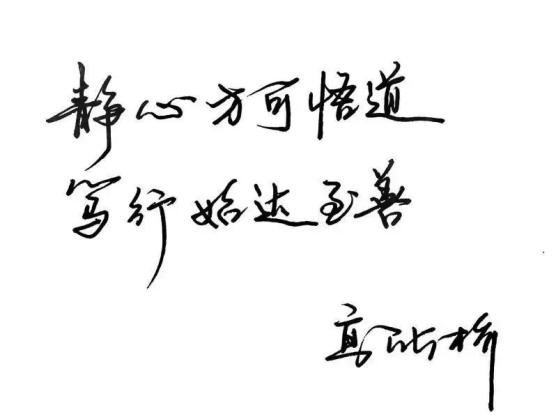 静心方可悟道
笃行始达至善
高